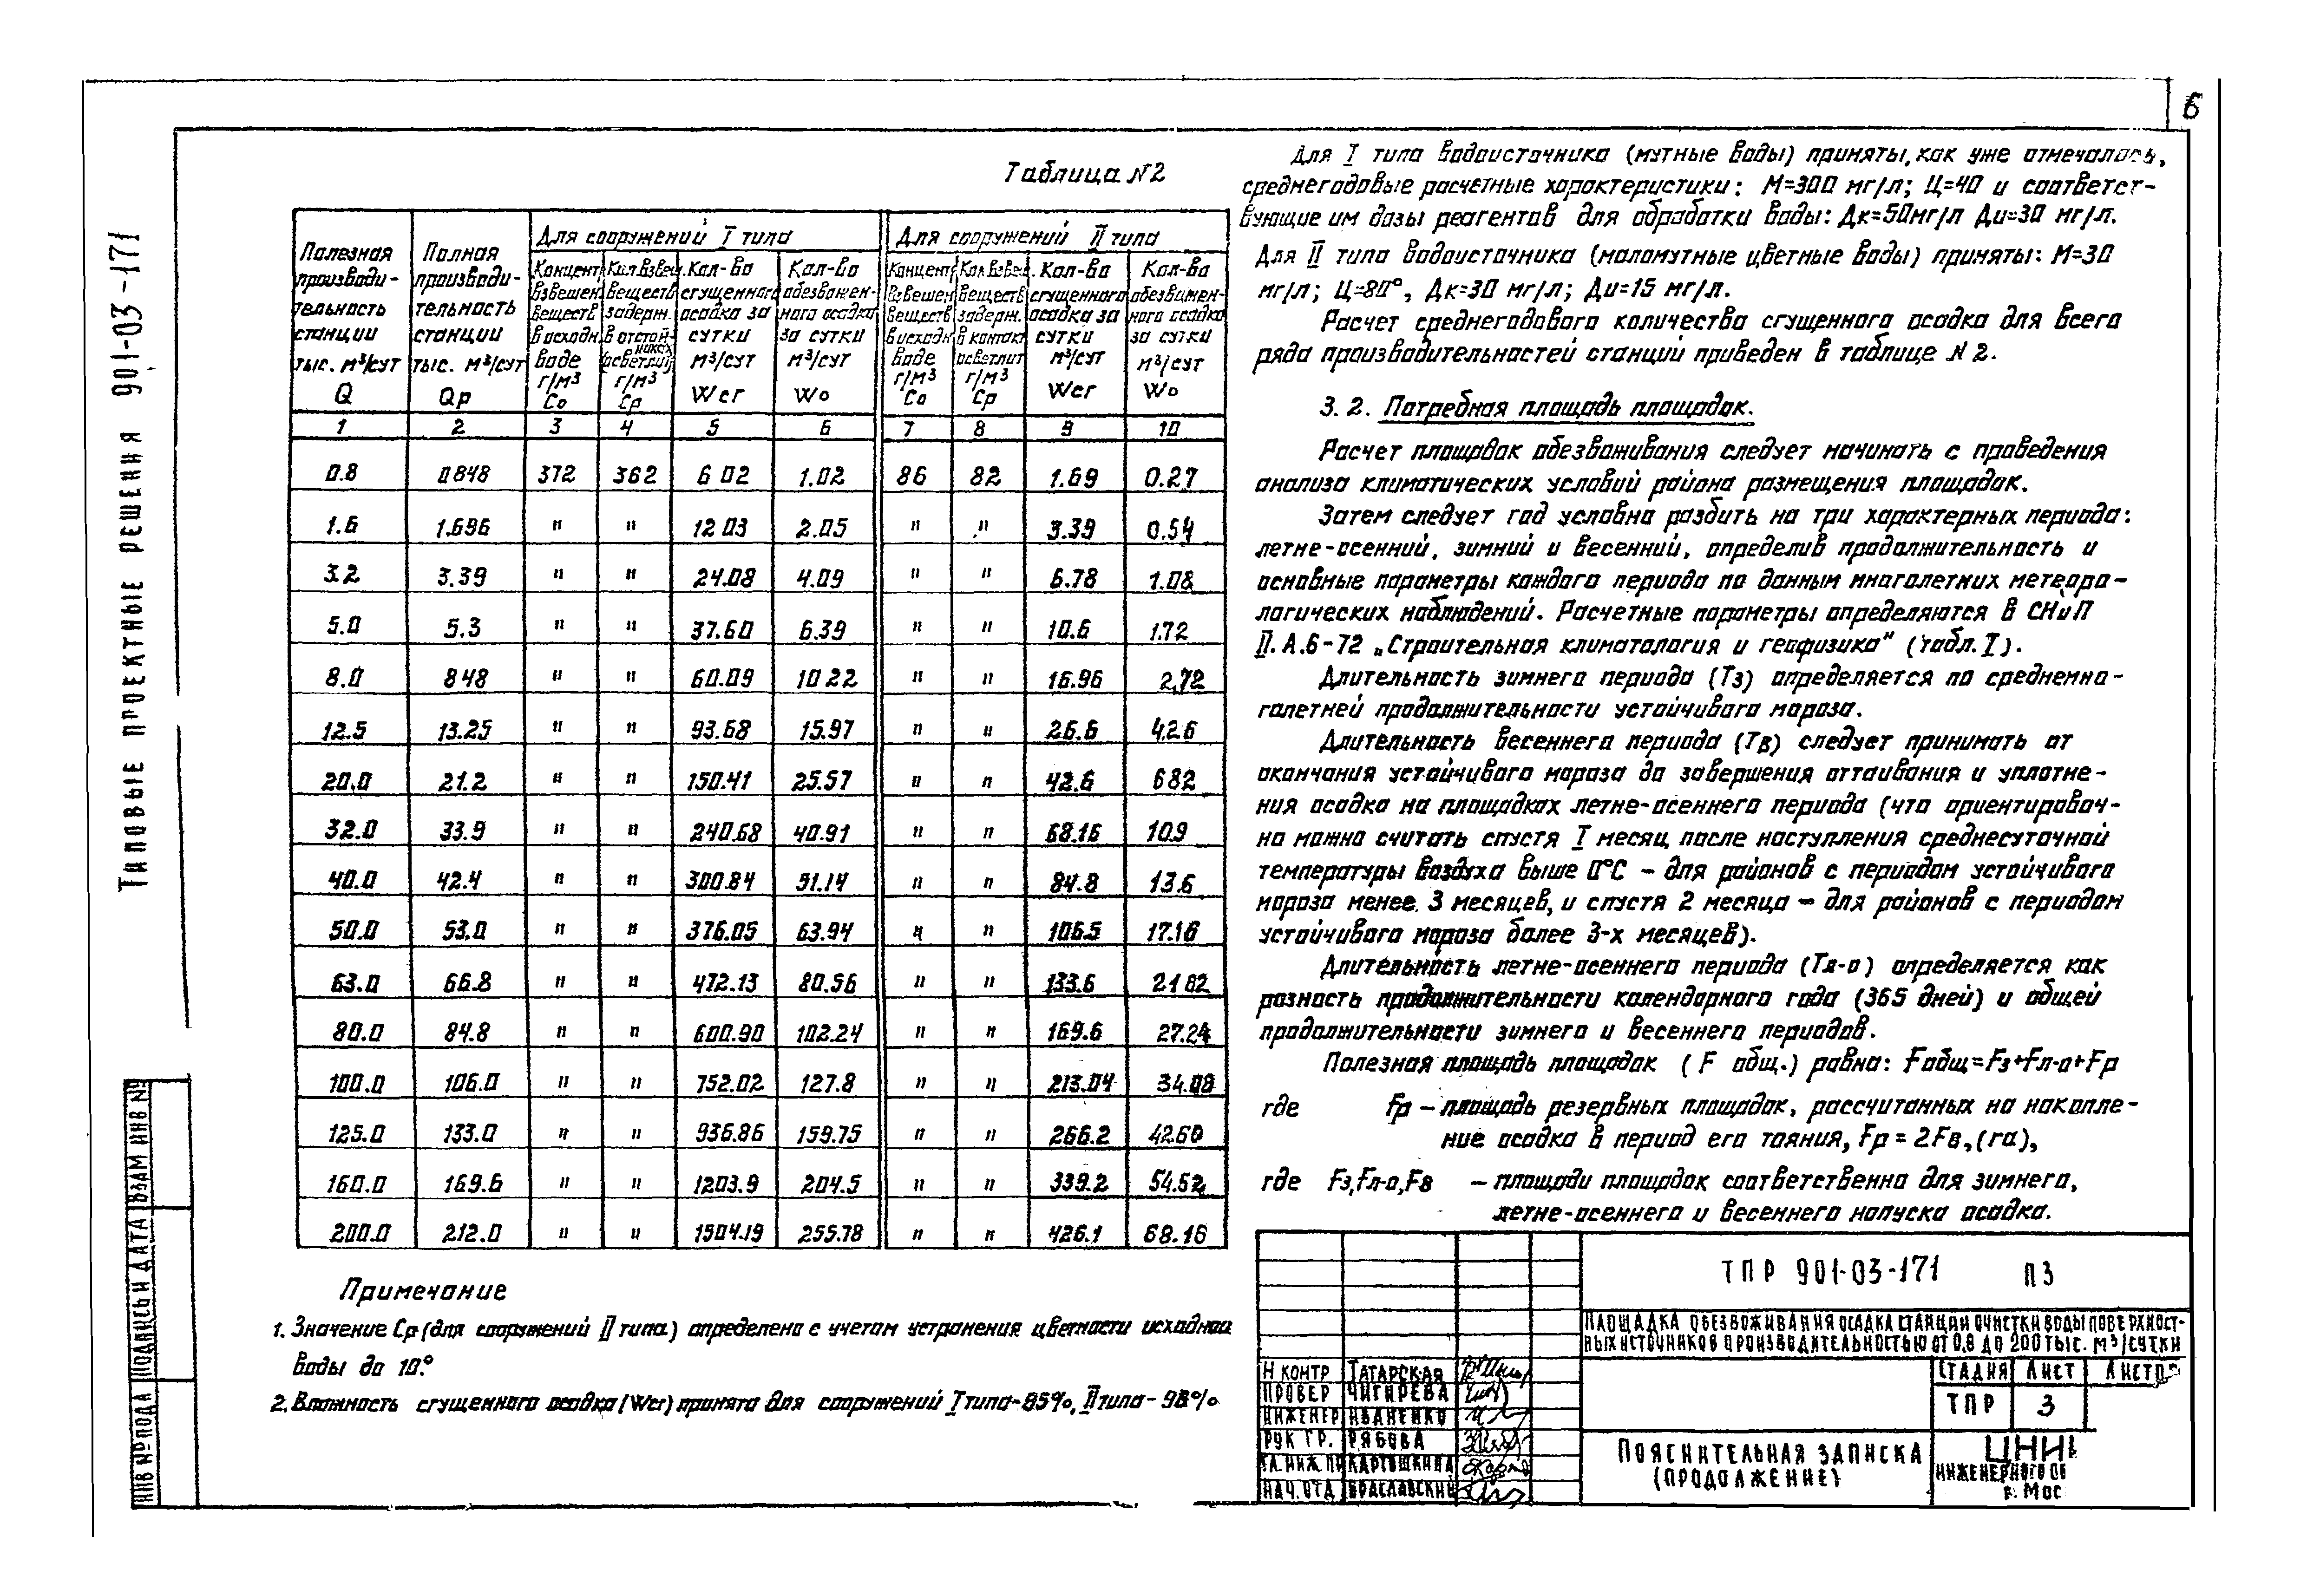 6
Типовые проектные решения 901-03-171
Таблица N2
Полезная производи-тельность станции тыс. м³/сут Q
Полная производи-тельность станции тыс. м³/сут Qр
Для сооружений I типа
Для сооружений II типа
Концентр. взвешен веществ в исходн воде г/м³ Со
Кол взвеш. веществ задерж. в отстой-никах (осветлит) г/м³ Ср
Кол-во сгущенного осадка за сутки м³/сут Wсг
Кол-во обезвожен-ного осадка за сутки м³/сут Wо
Концентр взвешен веществ в исходн воде г/м³ Со
Кол. взвеш. веществ задерж. в контакт осветлит г/м³ Ср
Кол-во сгущенного осадка за сутки м³/сут Wсг
Кол-во обезвожен-ного осадка за сутки м³/сут Wо
1 2 3 4 5 6 7 8 9 10
0.8 0848 372 362 6 02 1.02 86 82 1.69 0.27
1.6 1.696 " " 12 03 2.05 " " 3.39 0.54
3.2 3.39 " " 24.08 4.09 " " 6.78 1.08
5.0 5.3 " " 37.60 6.39 " " 10.6 1.72
8.0 848 " " 60.09 10 22 " " 16.96 2.72
12.5 13.25 " " 93.68 15.97 " " 26.6 4.26
20.0 21.2 " " 150.41 25.57 " " 42.6 682
32.0 33.9 " " 240.68 40.91 " " 68.16 10.9
40.0 42.4 " " 300.84 51.14 " " 84.8 13.6
50.0 53.0 " " 376.05 63.94 " " 106.5 17.16
63.0 66.8 " " 472.13 80.56 " " 133.6 21 82
80.0 84.8 " " 600.90 102.24 " " 169.6 27.24
100.0 106.0 " " 752.02 127.8 " " 213.04 34.08
125.0 133.0 " " 936.86 159.75 " " 266.2 42.60
160.0 169.6 " " 1203.9 204.5 " " 339.2 54.52
200.0 212.0 " " 1504.19 255.78 " " 426.1 68.16
Примечание
1. Значение Ср (для сооружений II типа) определено с учетом устранения цветности исходной
воды до 10°
2. Влажность сгущенного осадка (Wсг) принята для сооружений I типа-95%, II типа-98%
Для I типа водоисточника (мутные воды) приняты, как уже отмечалось,
среднегодовые расчетные характеристики: М=300 мг/л; Ц=40 и соответст-
вующие им дозы реагентов для обработки воды: Дк=50мг/л Ди=30 мг/л.
Для II типа водоисточника (маломутные цветные воды) приняты: М=30
мг/л; Ц=80°, Дк=30 мг/л; Ди=15 мг/л.
Расчет среднегодового количества сгущенного осадка для всего
ряда производительностей станций приведен в таблице N 2.
3.2. Потребная площадь площадок.
Расчет площадок обезвоживания следует начинать с проведения
анализа климатических условий района размещения площадок.
Затем следует год условно разбить на три характерных периода:
летне-осенний, зимний и весенний, определив продолжительность и
основные параметры каждого периода по данным многолетних метеоро-
логических наблюдений. Расчетные параметры определяются в СНиП
II.А.6-72 „Строительная климатология и геофизика" (табл. I).
Длительность зимнего периода (Тз) определяется по среднемно-
голетней продолжительности устойчивого мороза.
Длительность весеннего периода (Тв) следует принимать от
окончания устойчивого мороза до завершения оттаивания и уплотне-
ния осадка на площадках летне-осеннего периода (что ориентировоч-
но можно считать спустя I месяц после наступления среднесуточной
температуры воздуха выше 0°С - для районов с периодом устойчивого
мороза менее 3 месяцев, и спустя 2 месяца - для районов с периодом
устойчивого мороза более 3-х месяцев).
Длительность летне-осеннего периода (Тл-о) определяется как
разность продолжительности календарного года (365 дней) и общей
продолжительности зимнего и весеннего периодов.
Полезная площадь площадок (F общ.) равна: Fобщ=Fз+Fл-о+Fр
где Fр - площадь резервных площадок, рассчитанных на накопле-
ние осадка в период его таяния, Fр = 2Fв, (га),
где Fз, Fл-о, Fв - площади площадок соответственно для зимнего,
летне-осеннего и весеннего напуска осадка.
ТПР 901-03-171 ПЗ
Площадка обезвоживания осадка станции очистки воды поверхност-
ных источников производительностью от 0.8 до 200 тыс. м³/сутки
Н контр Татарская
Провер Чигирева
Инженер Иваненко
Рук гр. Рябова
Гл. инж. пр Картошкина
Нач. отд Браславский
Стадия Лист Листо
ТПР 3
Пояснительная записка
(продолжение)
ЦНИИ
инженерного об
г. Мос
Взам инв №
Подпись и дата
Инв № подл